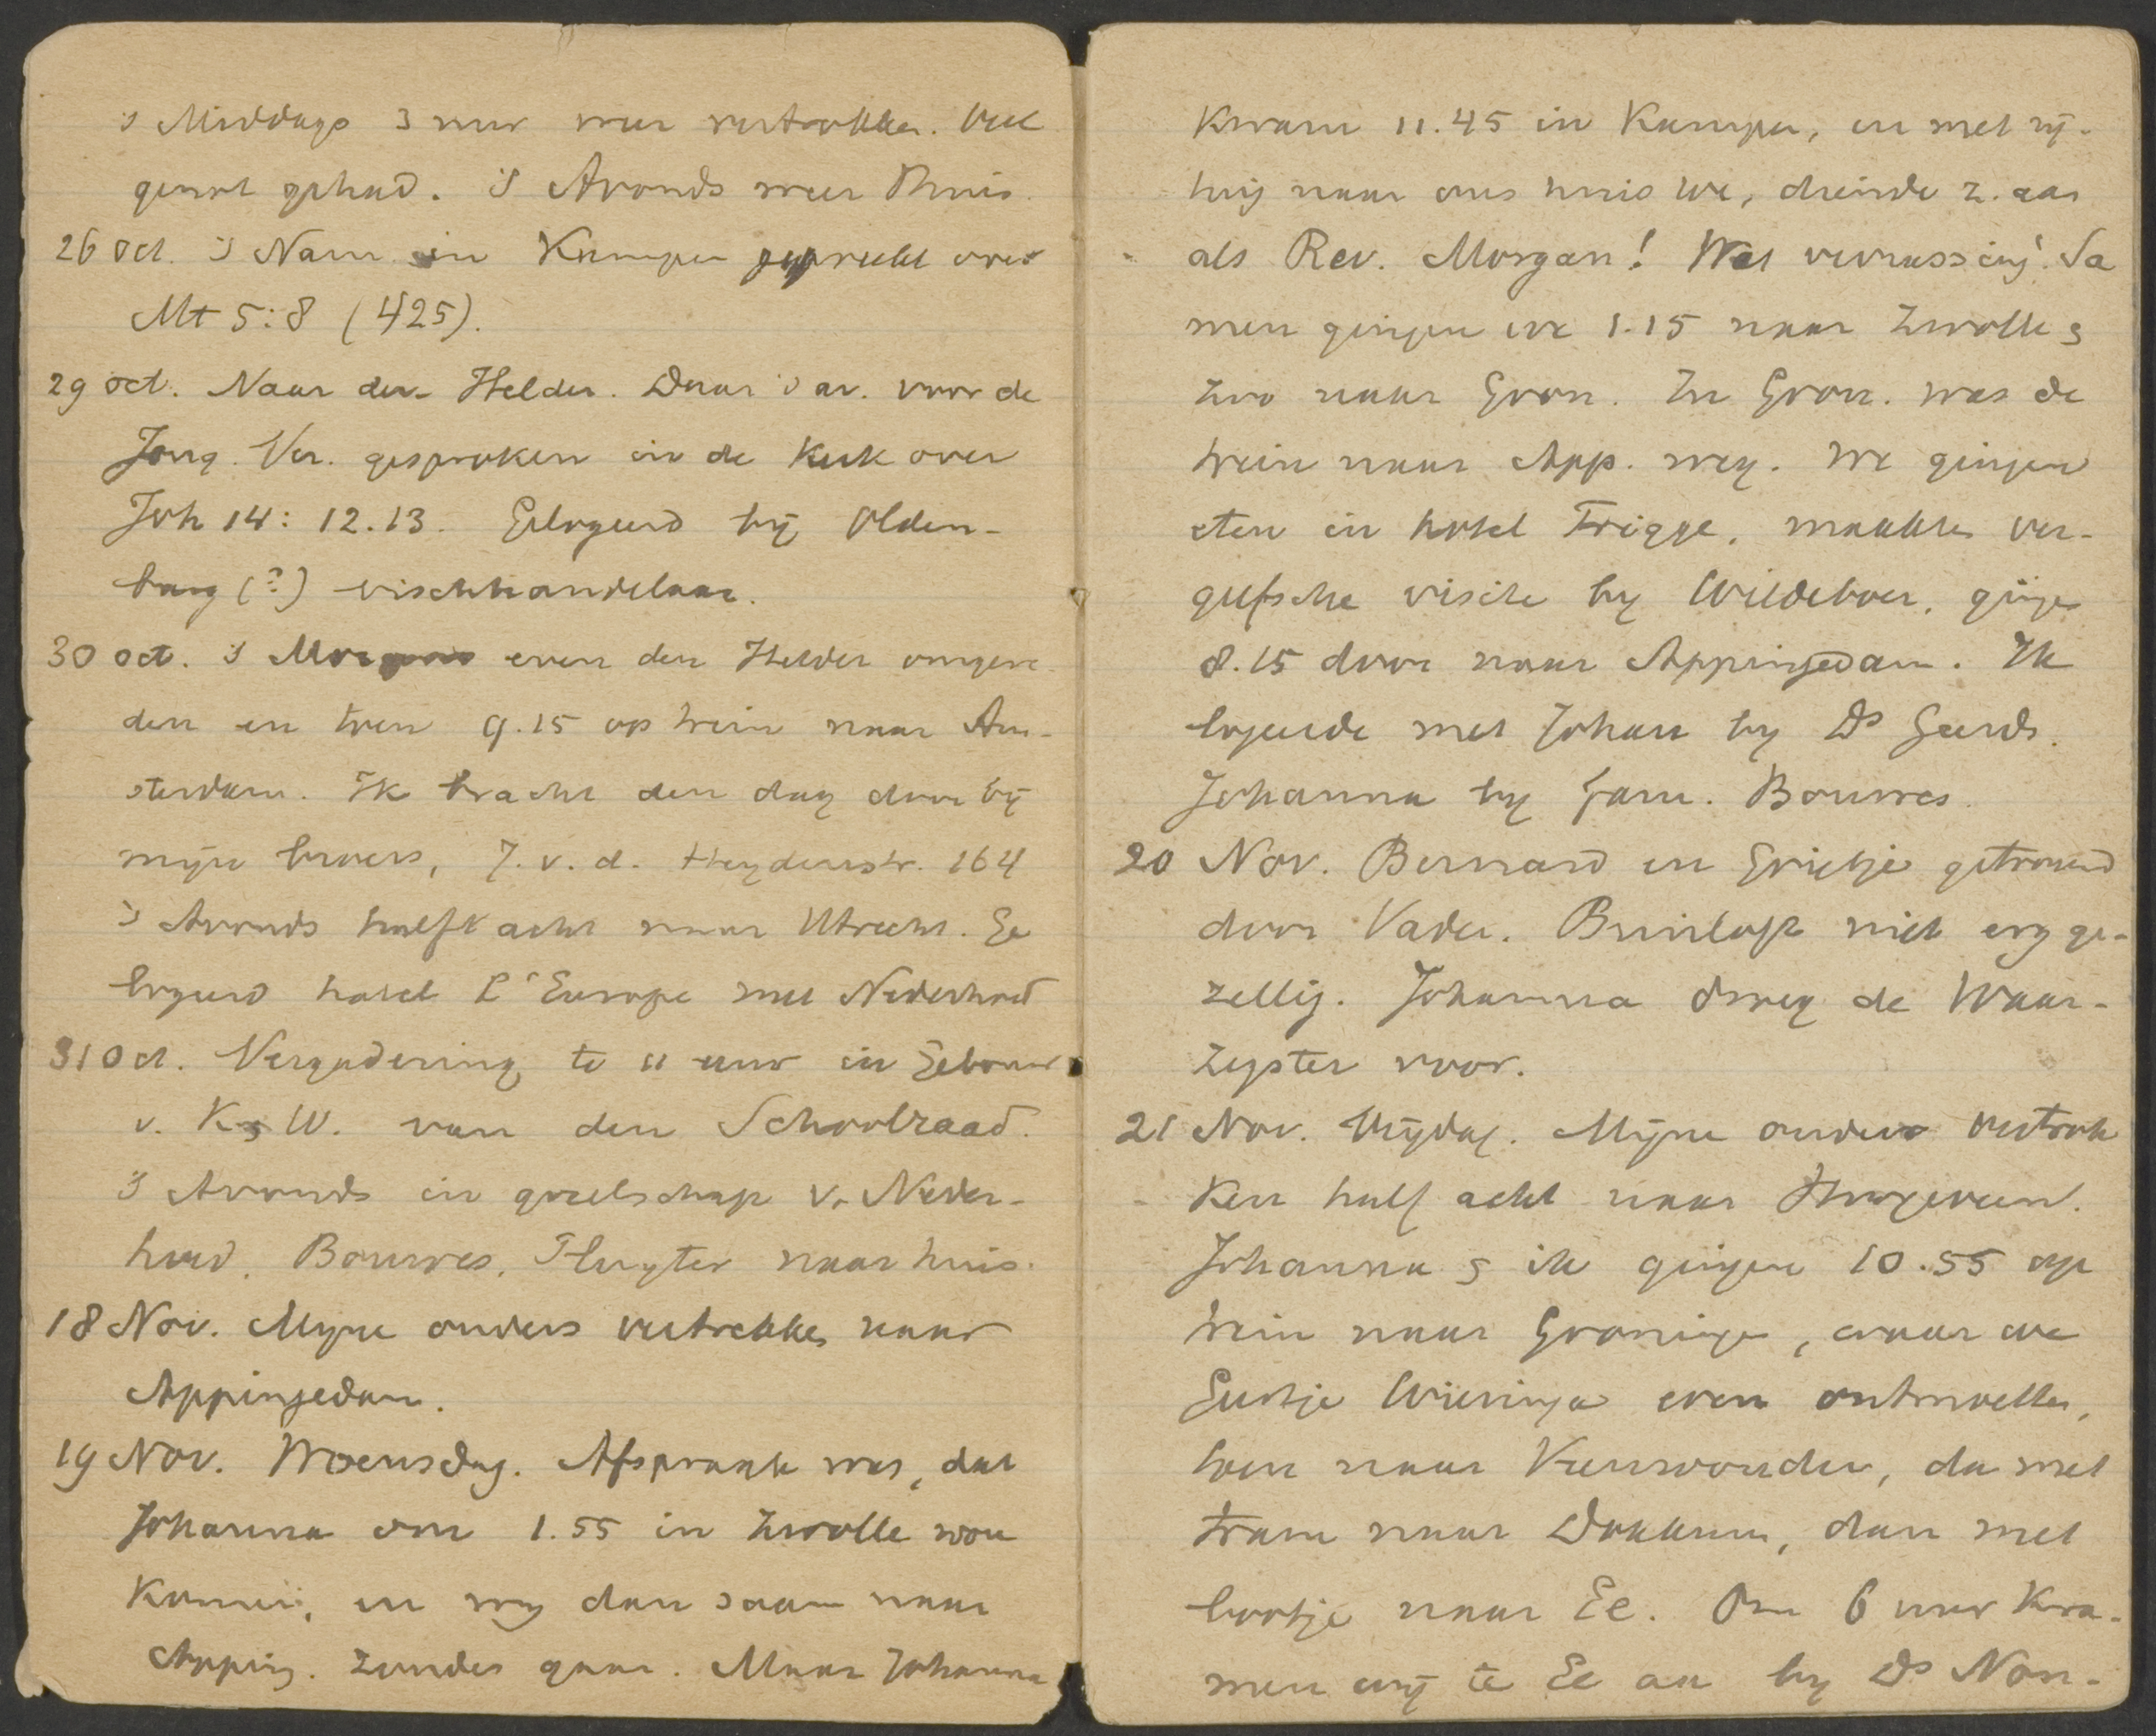 's Middags 3 uur weer vertrokken. Veel
genot gehad. 's Avonds weer thuis.
26 Oct. 's Nam. in Kampen gepreekt over
Mt 5:8 (425).
29 oct. Naar den Helder. Daar 's av. voor de
Jong. Ver. gesproken in de Kerk over
Joh 14: 12.13. Gelogeerd bij Olden-
burg (?) vischhandelaar.
30 oct. 's Morgens even den Helder omgere-
den en toen 9.15 op trein naar Am-
sterdam. Ik bracht den dag door bij
mijn broers, J. v. d. Heydenstr. 164
's Avonds half acht naar Utrecht. Ge
logeerd hotel L'Europe met Nederhoed
31 Oct. Vergadering te 11 uur in Gebouw
v. K & W. van den Schoolraad.
's Avonds in gezelschap v. Neder-
hoed, Bouwes, Fluyter naar huis.
18 Nov. Myne ouders vertrekken naar
Appingedam.
19 Nov. Woensdag. Afspraak was, dat
Johanna om 1.55 in Zwolle zou
Komen, en wy dan saam naar
Apping. zouden gaan. Maar Johanna
Kwam 11.45 in Kampen, en met rij-
tuig naar ons huis toe, diende z. aan
als Rev. Morgan! Wat verrassing! Sa
men gingen we 1.15 naar Zwolle &
zoo naar Gron. In Gron. was de
trein naar App. weg. We gingen
eten in hotel Frigge, maakten ver-
geefsche visite by Wildeboer, gingen
8.15 door naar Appingedam. Ik
logeerde met Johan by Ds Geerds.
Johanna by fam. Bouwes.
20 Nov. Bernard en Grietje getrouwd
door Vader. Bruiloft niet erg ge-
zellig. Johanna droeg de Waar-
zegster voor.
21 Nov. Vrijdag. Mijne ouders vertrok
ken half acht naar Hoogeveen.
Johanna & ik gingen 10.55 op
trein naar Groningen, waar we
Geertje Wieringa even ontmoetten,
toen naar Veenwouden, da met
tram naar Dokkum, dan met
bootje naar Ee. Om 6 uur Kwa-
men wij te Ee aan by Ds Non-